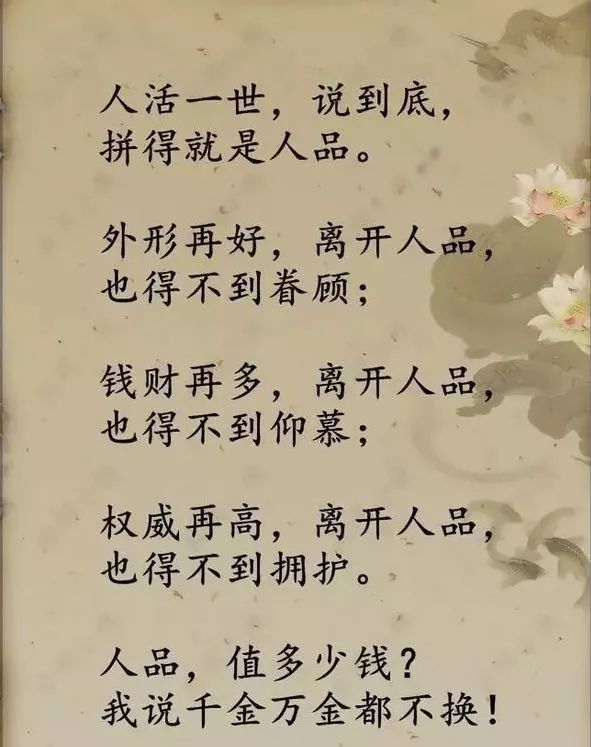 人活一世，说到底，
拼得就是人品。
外形再好，离开人品，
也得不到眷顾；
钱财再多，离开人品，
也得不到仰慕；
权威再高，离开人品，
也得不到拥护。
人品，值多少钱？
我说千金万金都不换！